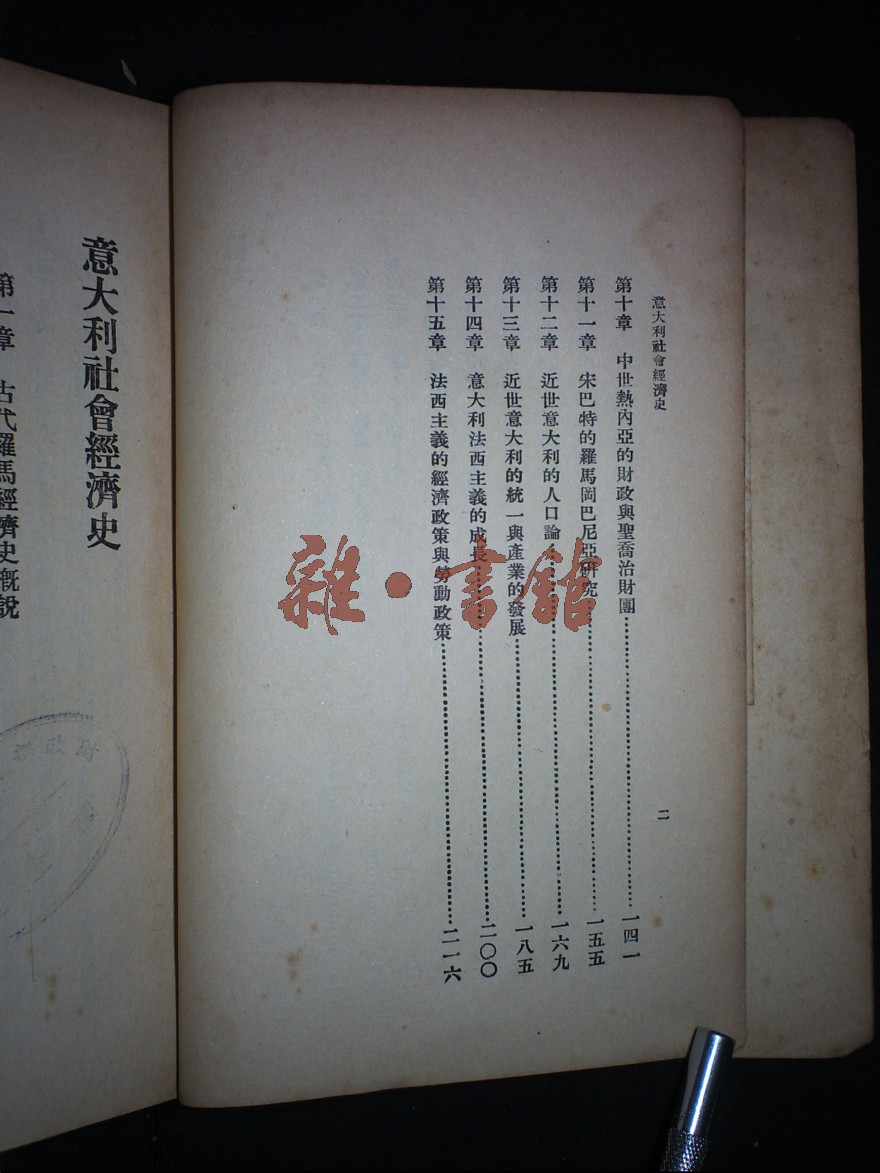 意大利社會經濟史
二
第十章 中世熱內亞的財政與聖喬治財團……一四一
第十一章 宋巴特的羅馬岡巴尼亞研究……一五五
第十二章 近世意大利的人口論……一六九
第十三章 近世意大利的統一與產業的發展……一八五
第十四章 意大利法西主義的成長……二〇〇
第十五章 法西主義的經濟政策與勞動政策……二一六
意大利社會經濟史
第一章 古代羅馬經濟史概說
雜·書館